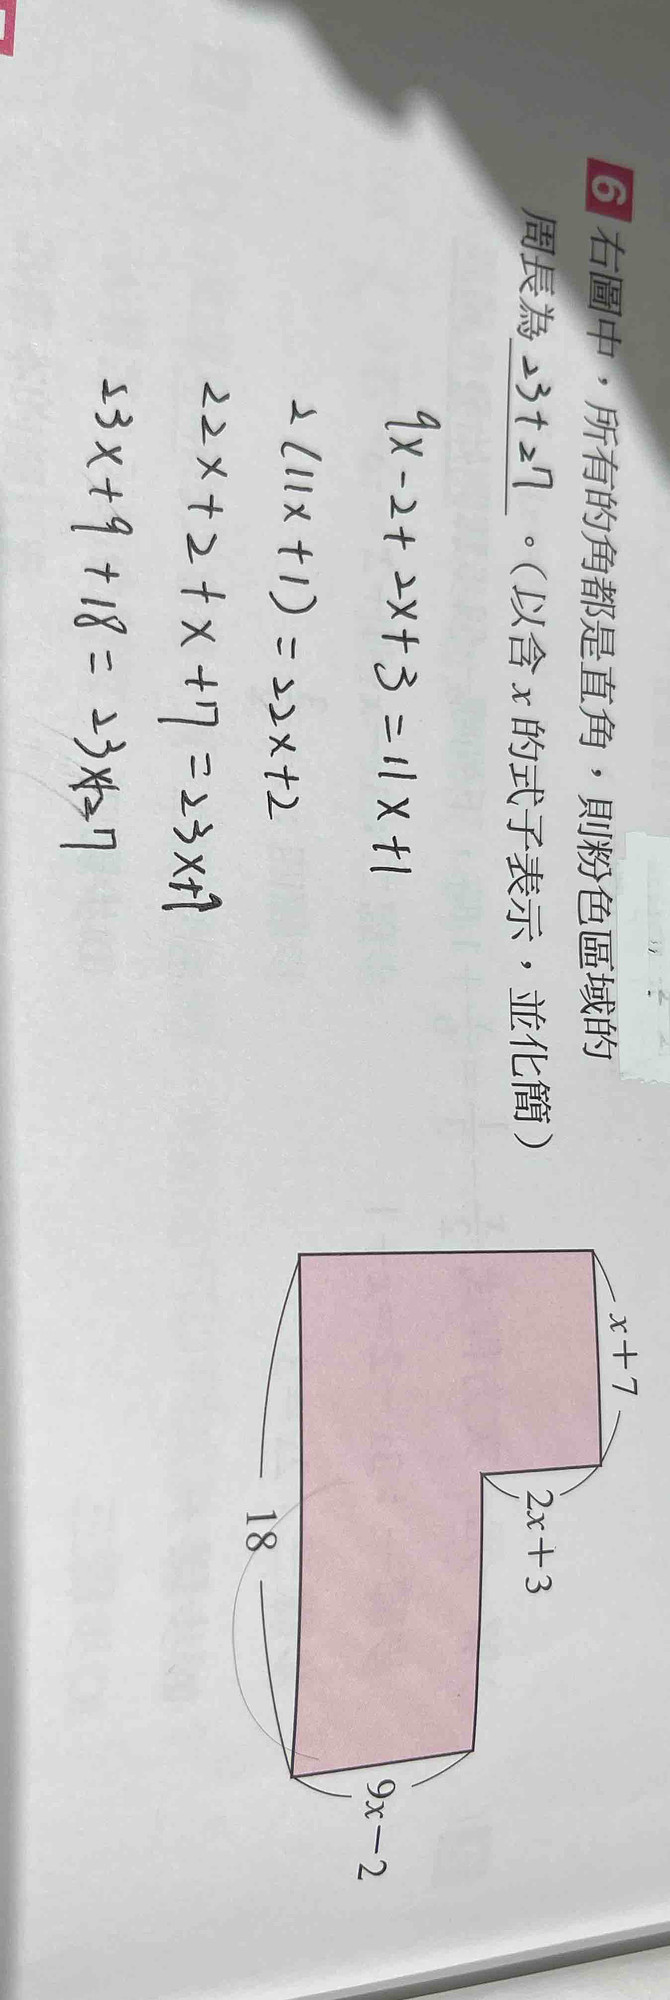 6 右圖中，所有的角都是直角，則粉色區域的
周長為 23+27 。（以含 x 的式子表示，並化簡）
9x-2+2x+3=11x+1
2(11x+1)=22x+2
22x+2+x+7=23x+9
23x+9+18=23x+27
x+7
2x+3
18
9x-2